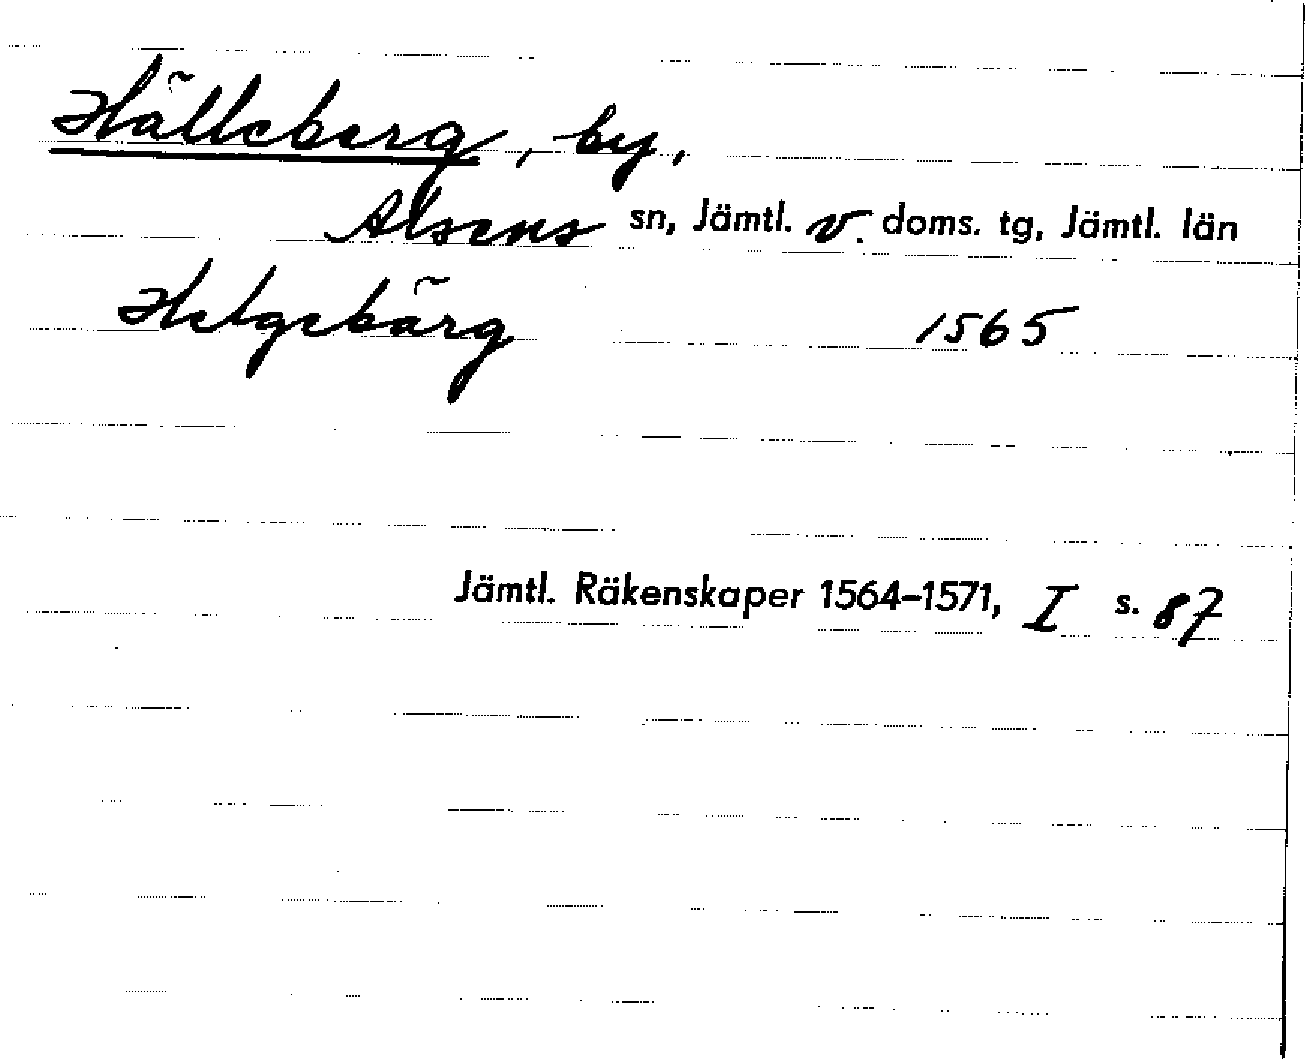 Hälleberg, by,
Alsens sn, Jämtl. v. doms. tg, Jämtl. län
Helgebärg 1565
Jämtl. Räkenskaper 1564–1571, I s. 87